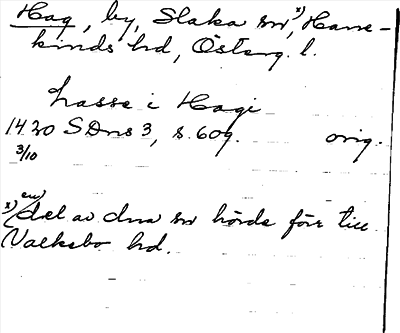 Hag, by, Slaka sn, x) Hane-
kinds hd, Österg. l.
Lasse i Hagi
1420 SDns 3, s. 609. orig.
3/10
x) en del av dna sn hörde förr till
Valkebo hd.